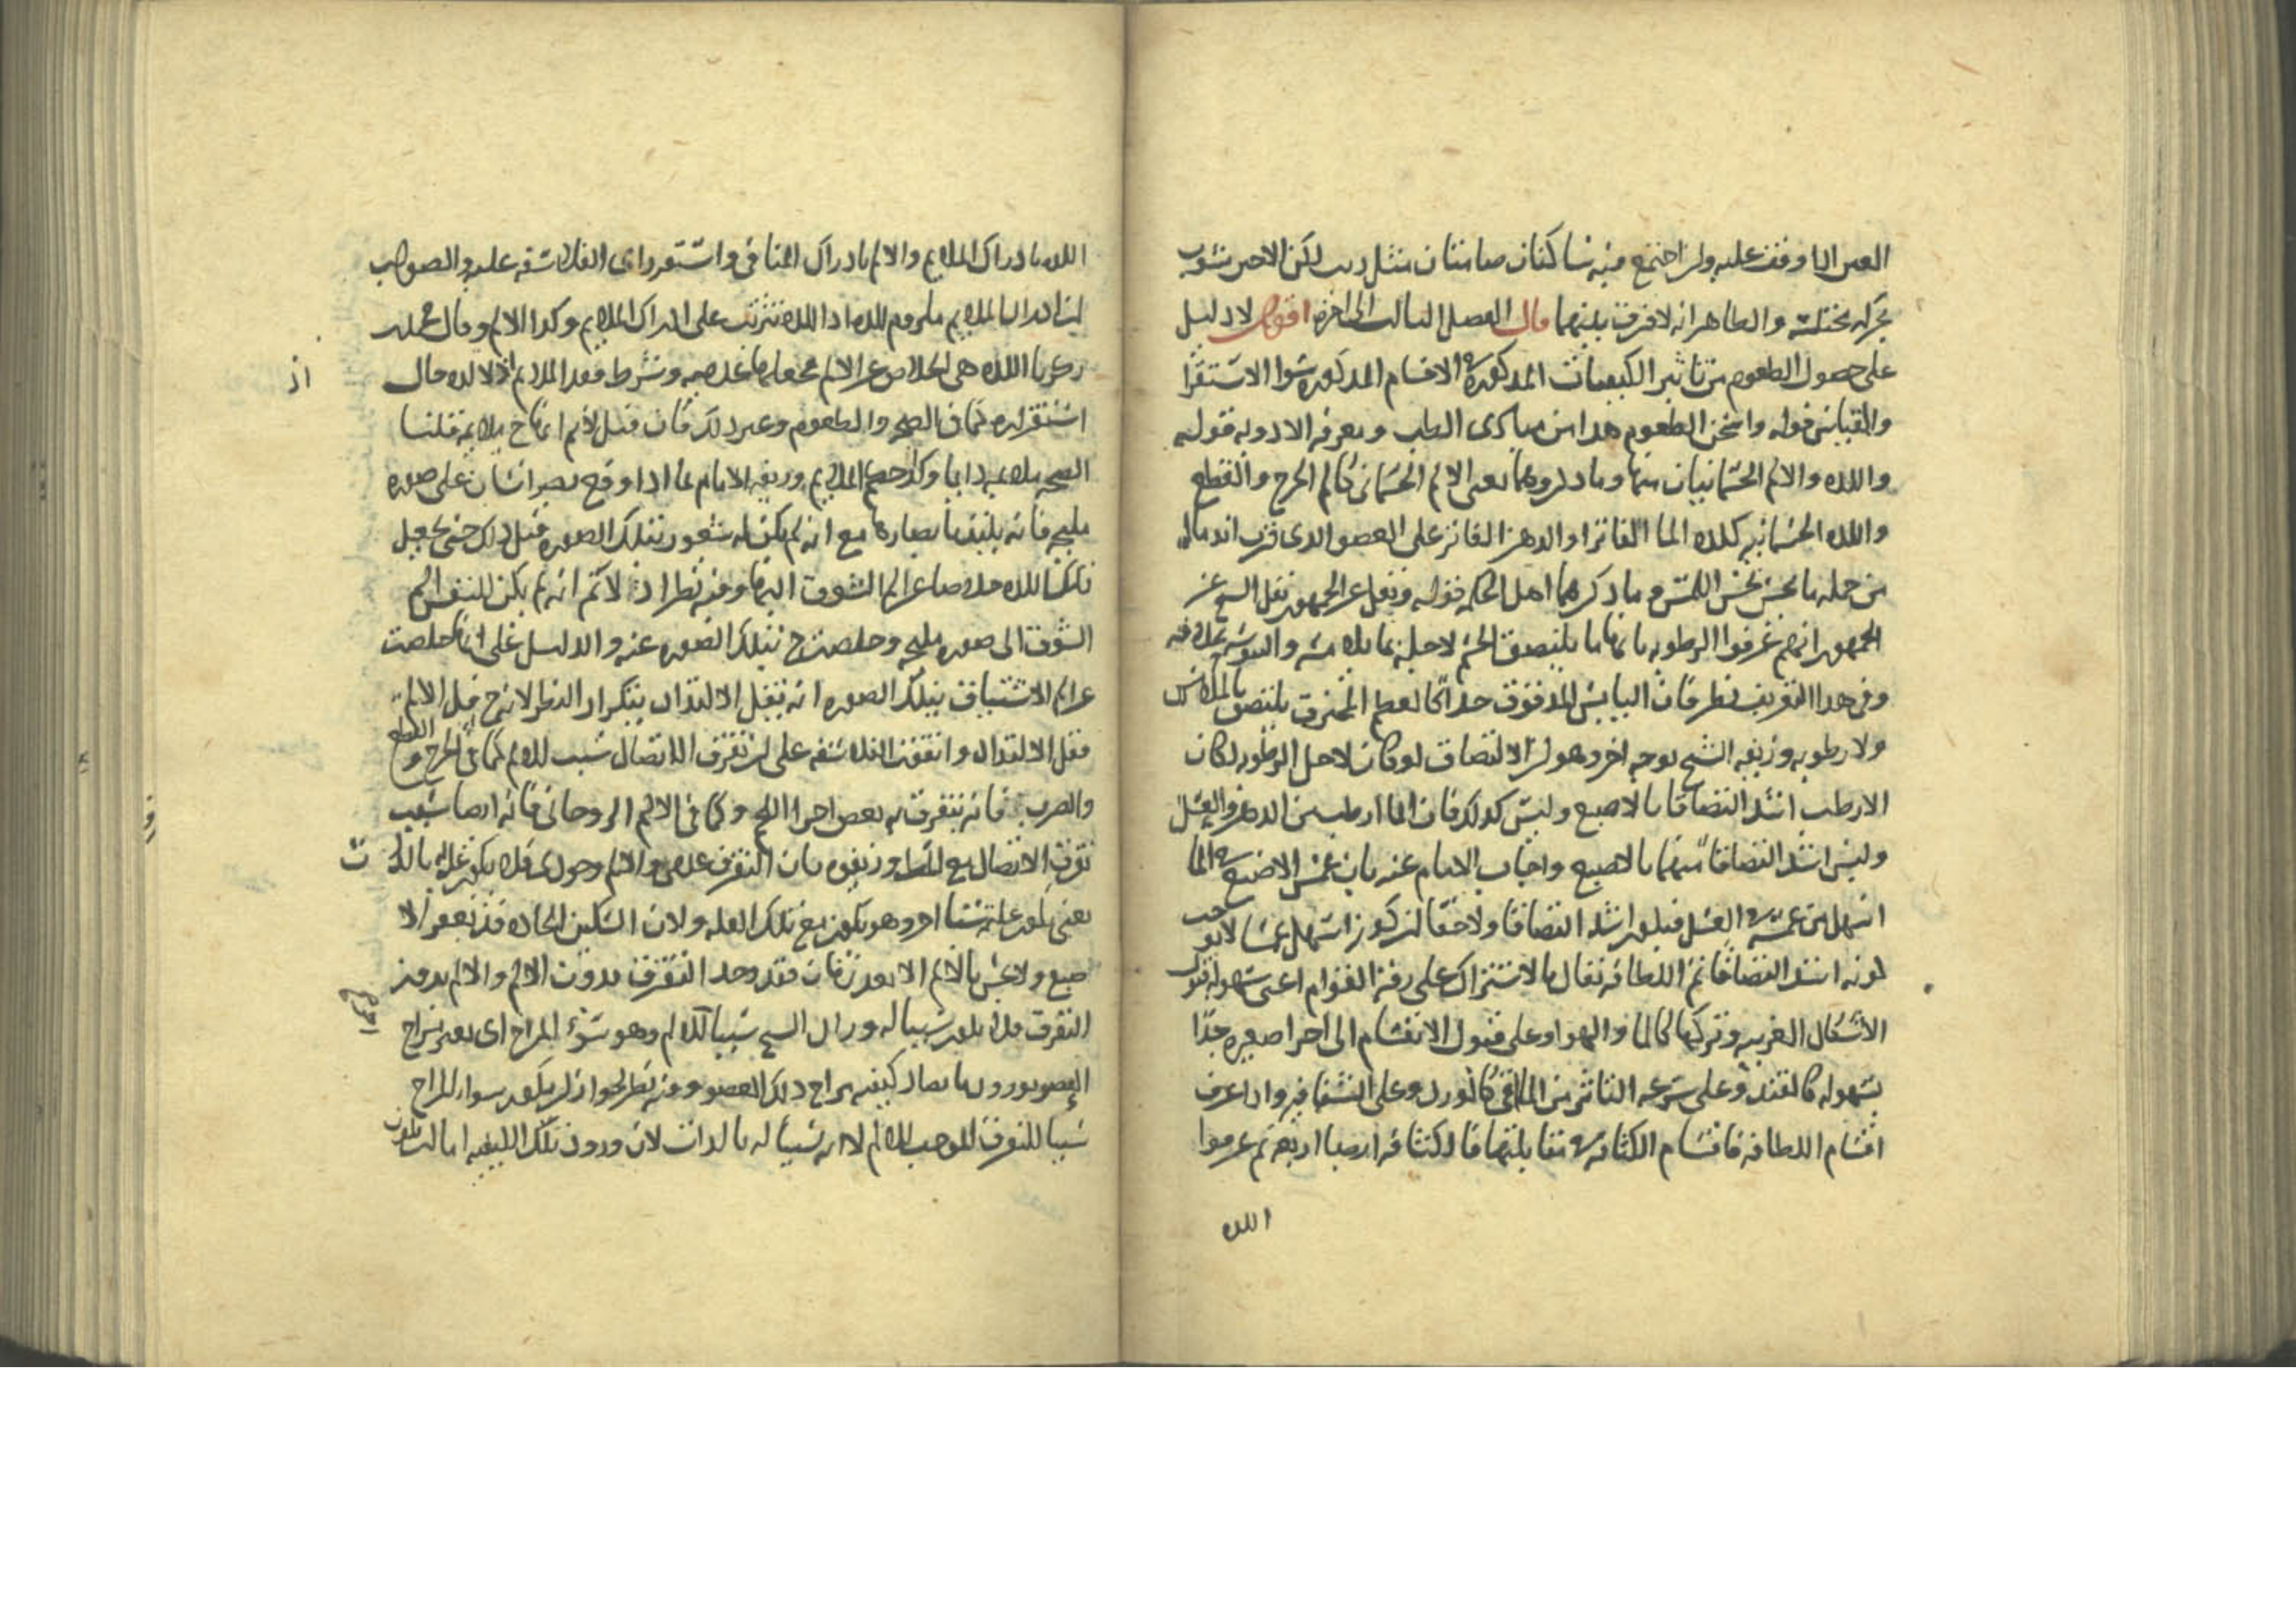 العين اذا وقف عليه ولن اجتمع فيه ساكنان صامتان مثل لكن الاخير مشوب
بحركه مختلسه والظاهر انه لا فرق بينهما قال الفصل الثالث الى اخره اقول لا دليل
على حصول الطعوم من تاثير الكيفيات المذكوره الاقسام المذكوره سوا الاستقرا
والقياس قوله واسخن الطعوم هذا من مبادى الطب ومعرفه الادويه قوله
واللذه والالم الجسمانيان منها وما دل وهما يعنى الالم الجسمانى كالم الجرح والقطع
واللذه الجسمانيه كلذه الما الفاتر او الدهن الفاتر على العضو الذى قرب اندماله
من جمله ما يحس بحس اللمس وما ذكرهما اهل الحكمه قوله ونقل عن الجمهور نقل الشيخ عن
الجمهور انهم عرفوا الرطوبه بانها ما يلتصق الجسم لاجلها بما يلامسه واليبوسه بخلافه
وفى هذا التعريف نظر فان اليابس المدقوق جدا كالعظم المحترق يلتصق بالملامس
ولا رطوبه وزيفه الشيخ بوجه اخر وهو لن الالتصاق لو كان لاجل الرطوبه لكان
الارطب اشد التصاقا بالاصبع وليس كذلك فان الما ارطب من الدهن والعسل
وليس اشد التصاقا منهما بالاصبع واجاب الامام عنه بان غمس الاصبع فى الما
اسهل من غمسه فى العسل فيكون اشد التصاقا ولا خفا لن كونه اسهل غمسا لا يوجب
كونه اشد التصاقا ثم اللطافه تقال بالاشتراك على رقة القوام اعنى سهوله قبول
الاشكال الغريبه وتركها كالما والهوا وعلى قبول الانقسام الى اجزا صغيره جدا
بسهوله كالقند وعلى سرعه التاثر من الملاقى كالورد وعلى الشفافيه واذا عرف
اقسام اللطافه فاقسام الكثافه فى مقابلتها فالكثافه ايضا اربعه ثم عرفوا
اللذه
اللذه بادراك الملايم والالم بادراك المنافى واستقر راى الفلاسفه عليه والصواب
لن ادراك الملايم ملزوم للذه اذ اللذه تترتب على ادراك الملايم وكذا الالم وقال محمد بن
زكريا اللذه هى الخلاص عن الالم وشرط فقد الملايم اذ لا لذه حال
اذ
استقراره كما فى الصحه والطعوم وغير ذلك فان قيل لانم انها ح ملايمه قلنا
الصحه ملايمه دايما وكذا جميع الملايم وزيفه الامام بما اذا وقع بصر انسان على صوره
مليحه فانه يلتذ بابصارها مع انه لم يكن له شعور بتلك الصوره قبل ذلك حتى يجعل
تلك اللذه خلاصا عن الم الشوق اليها وفيه نظر اذ لا نم انه لم يكن للنفس الم
الشوق الى صوره مليحه وخلصت ح بتلك الصوره عنه والدليل على انها خلصت
عن الم الاشتياق بتلك الصوره انه يقل الالتذاذ بتكرار النظر لانه ح قل الالم
فقل الالتذاذ واتفقت الفلاسفه على لن تفرق الاتصال سبب للالم كما فى الجرح والقطع
والضرب فانه يتفرق به بعض اجزا اللحم وكما فى الالم الروحانى فانه ايضا بسبب
تفرق الاتصال وزيفوه بان التفرق عدمى والالم وجودى فلا يكون عله بالذات
صبع ولا يحس بالالم الا بعد زمان فقد وجد التفرق بدون الالم والالم بدون
التفرق فلا يكون سببا له وزاد الشيخ سببا للالم وهو سو المزاج اى تغير مزاج
العضو بورود ما يضاد كيفيه مزاج ذلك العضو وفيه نظر لجواز لن يكون سو المزاج
سببا للتفرق الموجب للالم لا انه سببا له بالذات لان ورود تلك الكيفيه اما لت